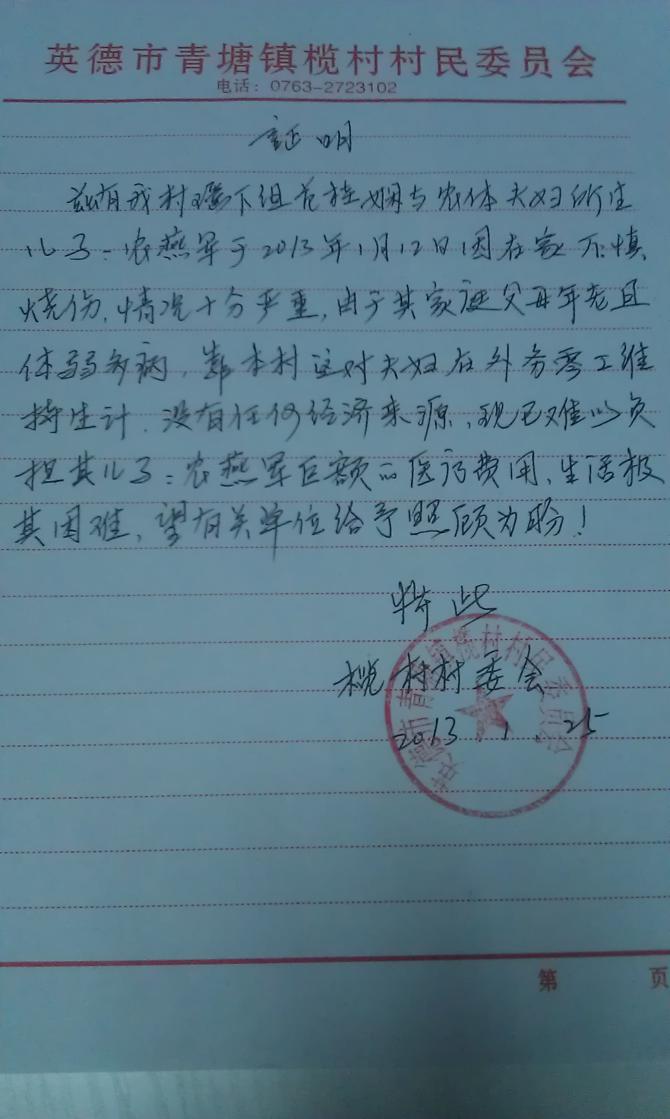 英德市青塘镇榄村村民委员会
电话：0763-2723102
证明
兹有我村下组范桂娴与农体夫妇所生
儿子：农燕军于2013年1月12日因在家不慎
烧伤，情况十分严重，由于其家庭父母年老且
体弱多病，靠本村这对夫妇在外务零工维
持生计．没有任何经济来源，现已难以负
担其儿子：农燕军巨额的医疗费用，生活极
其困难，望有关单位给予照顾为盼！
特此
榄村村委会
2013．1．25
英德市青塘镇榄村村民委员会
第 页